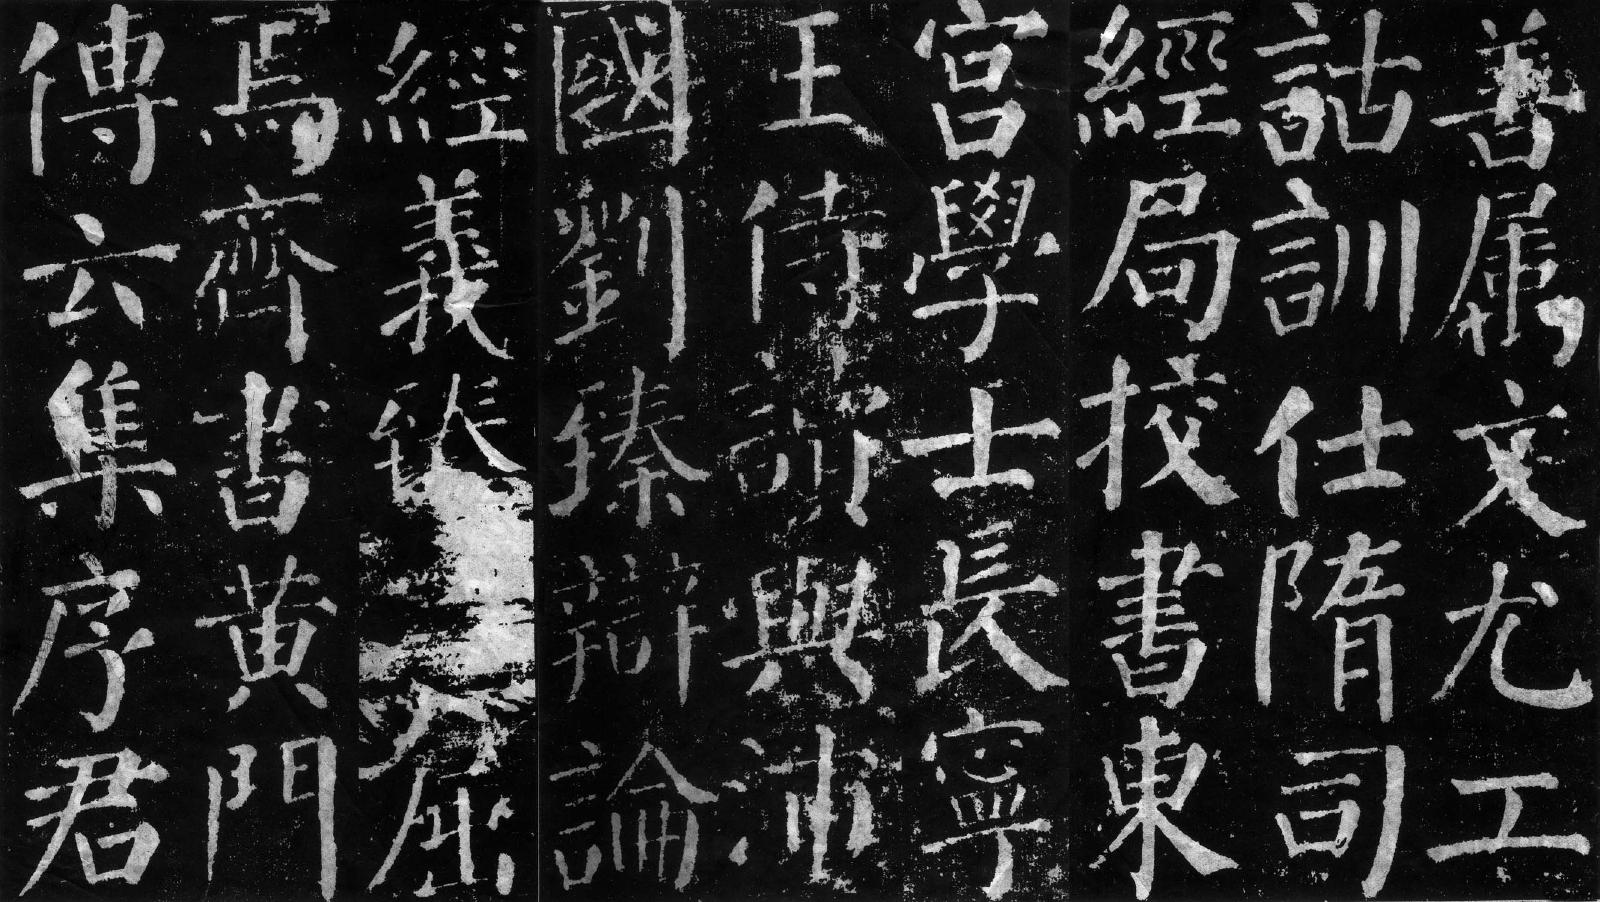 善屬文尤工
詁訓仕隋司
經局挍書東
宮學士長寧
王侍讀與沛
國劉臻辯論
經義臻屈
焉齊書黃門
傳云集序君